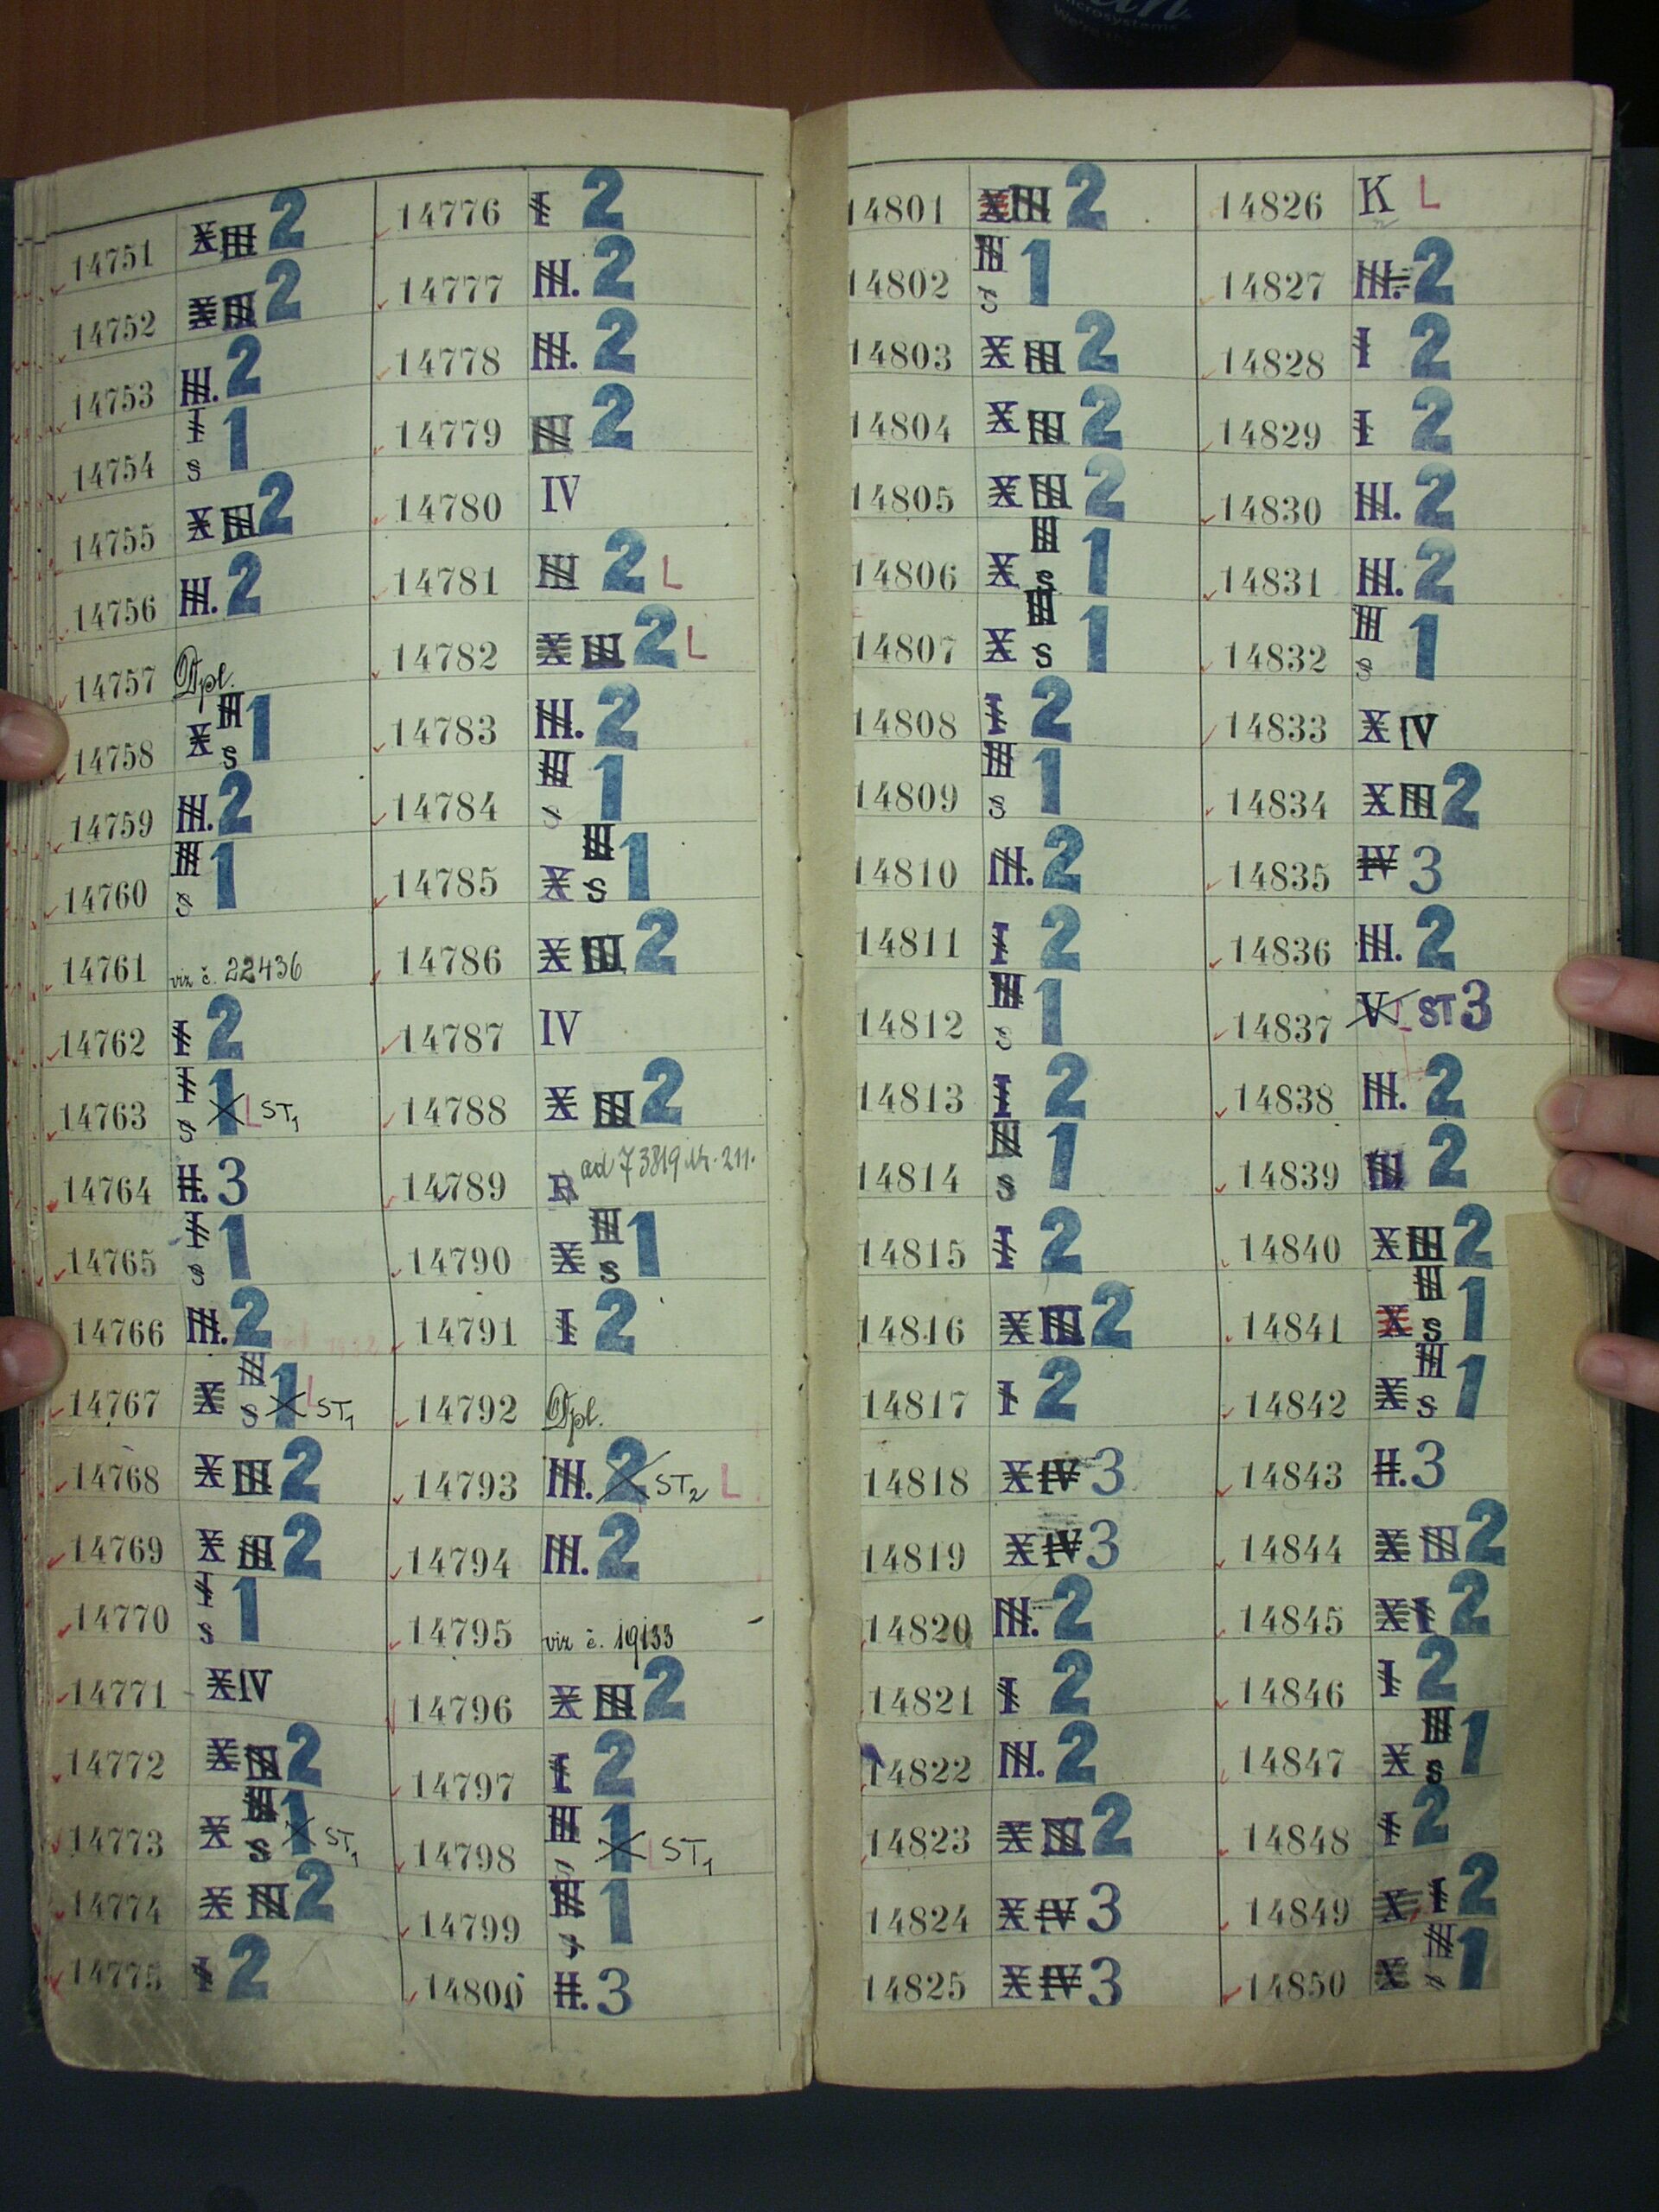 Microsystems
14751 X III 2
14752 X III 2
14753 III. 2
14754 I s 1
14755 X III 2
14756 III. 2
14757 Dpl.
14758 X III s 1
14759 III. 2
14760 III s 1
14761 viz č. 22436
14762 I 2
14763 I s 1 L ST1
14764 II. 3
14765 I s 1
14766 III. 2
14767 X III s 1 L ST1
14768 X III 2
14769 X III 2
14770 I s 1
14771 X IV
14772 X III 2
14773 X III s 1 ST1
14774 X III 2
14775 I 2
14776 I 2
14777 III. 2
14778 III. 2
14779 III 2
14780 IV
14781 III 2 L
14782 X III 2 L
14783 III. 2
14784 III s 1
14785 X III s 1
14786 X III 2
14787 IV
14788 X III 2
14789 R ad 73819
14790 X III s 1
14791 I 2
14792 Dpl.
14793 III. 2 ST2 L
14794 III. 2
14795 viz č. 19133
14796 X III 2
14797 I 2
14798 III s 1 L ST1
14799 III s 1
14800 II. 3
14801 X III 2
14802 III s 1
14803 X III 2
14804 X III 2
14805 X III 2
14806 X III s 1
14807 X III s 1
14808 I 2
14809 III s 1
14810 III. 2
14811 I 2
14812 III s 1
14813 I 2
14814 III s 1
14815 I 2
14816 X III 2
14817 I 2
14818 X IV 3
14819 X IV 3
14820 III. 2
14821 I 2
14822 III. 2
14823 X III 2
14824 X IV 3
14825 X IV 3
14826 K L
14827 III. 2
14828 I 2
14829 I 2
14830 III. 2
14831 III. 2
14832 III s 1
14833 X IV
14834 X III 2
14835 IV 3
14836 III. 2
14837 V L ST 3
14838 III. 2
14839 III 2
14840 X III 2
14841 X III s 1
14842 X III s 1
14843 II. 3
14844 X III 2
14845 X I 2
14846 I 2
14847 X III s 1
14848 I 2
14849 X I 2
14850 X III s 1